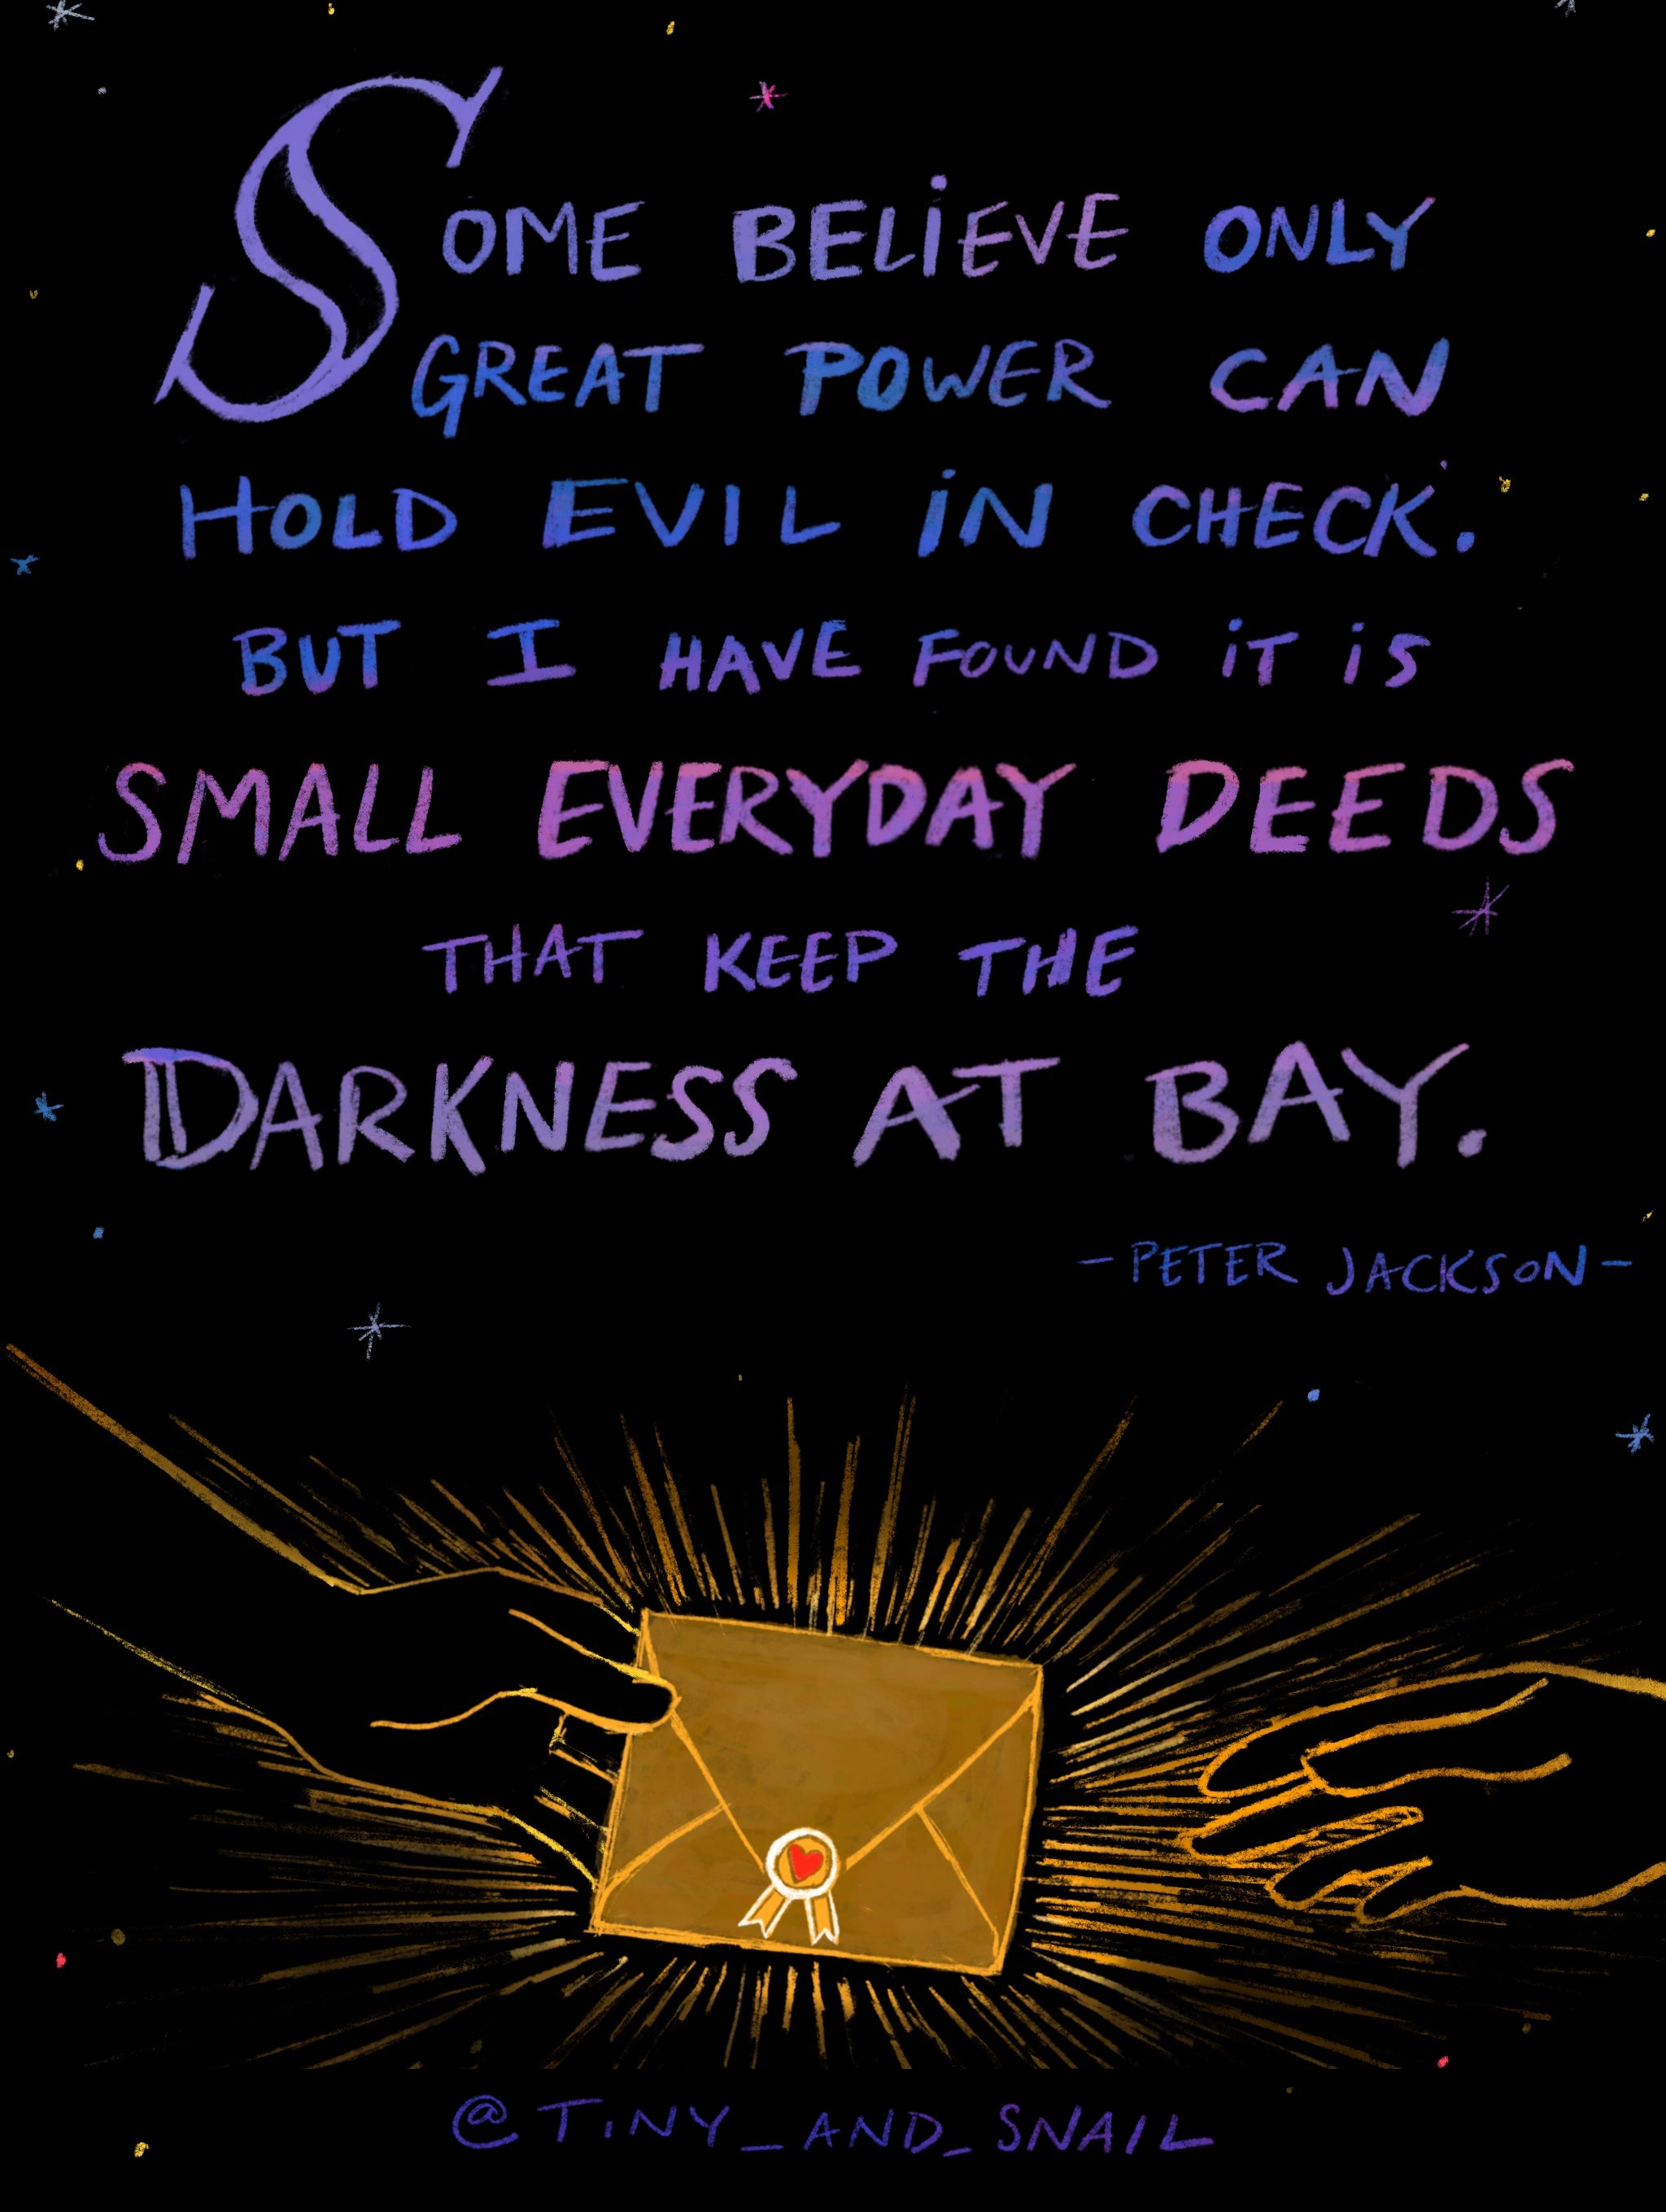 SOME BELIEVE ONLY
GREAT POWER CAN
HOLD EVIL IN CHECK.
BUT I HAVE FOUND IT IS
SMALL EVERYDAY DEEDS
THAT KEEP THE
DARKNESS AT BAY.
- PETER JACKSON -
@TINY_AND_SNAIL